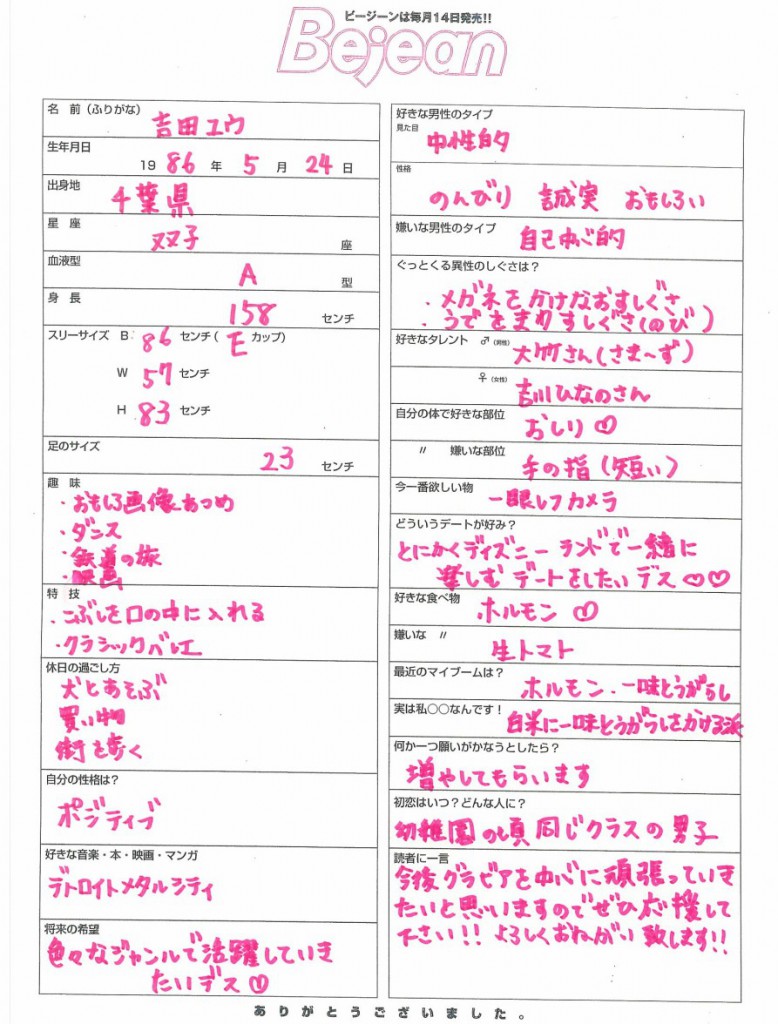 ビージーンは毎月14日発売!!
Bejean
名　前（ふりがな）
吉田ユウ
生年月日
19 86 年 5 月 24 日
出身地
千葉県
星　座
双子 座
血液型
A 型
身　長
158 センチ
スリーサイズ B. 86 センチ( E カップ)
W 57 センチ
H 83 センチ
足のサイズ
23 センチ
趣　味
・おもしろ画像あつめ
・ダンス
・鉄道の旅
・映画
特　技
・こぶしを口の中に入れる
・クラシックバレエ
休日の過ごし方
犬とあそぶ
買い物
街を歩く
自分の性格は？
ポジティブ
好きな音楽・本・映画・マンガ
デトロイトメタルシティ
将来の希望
色々なジャンルで活躍していき
たいデス♡
好きな男性のタイプ
見た目
中性的
性格
のんびり　誠実　おもしろい
嫌いな男性のタイプ
自己中心的
ぐっとくる異性のしぐさは？
・メガネをかけなおすしぐさ
・うでをまくりすしぐさ(のび)
好きなタレント ♂(男性)
大竹さん(さま〜ず)
♀(女性)
吉川ひなのさん
自分の体で好きな部位
おしり♡
〃　嫌いな部位
手の指（短い）
今一番欲しい物
一眼レフカメラ
どういうデートが好み？
とにかくディズニーランドで一緒に
楽しむデートをしたいデス♡♡
好きな食べ物
ホルモン♡
嫌いな 〃
生トマト
最近のマイブームは？
ホルモン・一味とうがらし
実は私○○なんです！
白米に一味とうがらしをかける派
何か一つ願いがかなうとしたら？
増やしてもらいます
初恋はいつ？どんな人に？
幼稚園の頃同じクラスの男子
読者に一言
今後グラビアを中心に頑張っていき
たいと思いますのでぜひ応援して
下さい!! よろしくおねがい致します!!
ありがとうございました。